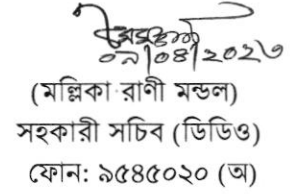 ০৯/০৪/২০২৩
(মল্লিকা রাণী মন্ডল)
সহকারী সচিব (ডিডিও)
ফোন: ৯৫৪৫০২০ (অ)